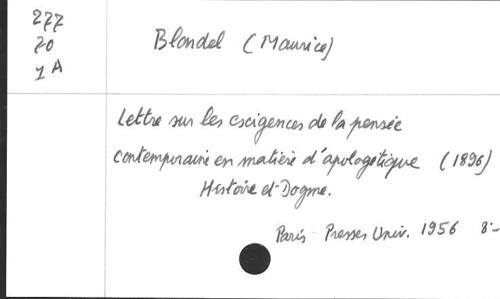 277
70
1A
Blondel (Maurice)
Lettre sur les escigences de la pensée
contemporaine en matière d'apologétique (1896)
Histoire et Dogme.
Paris Presses Univ. 1956 8:-